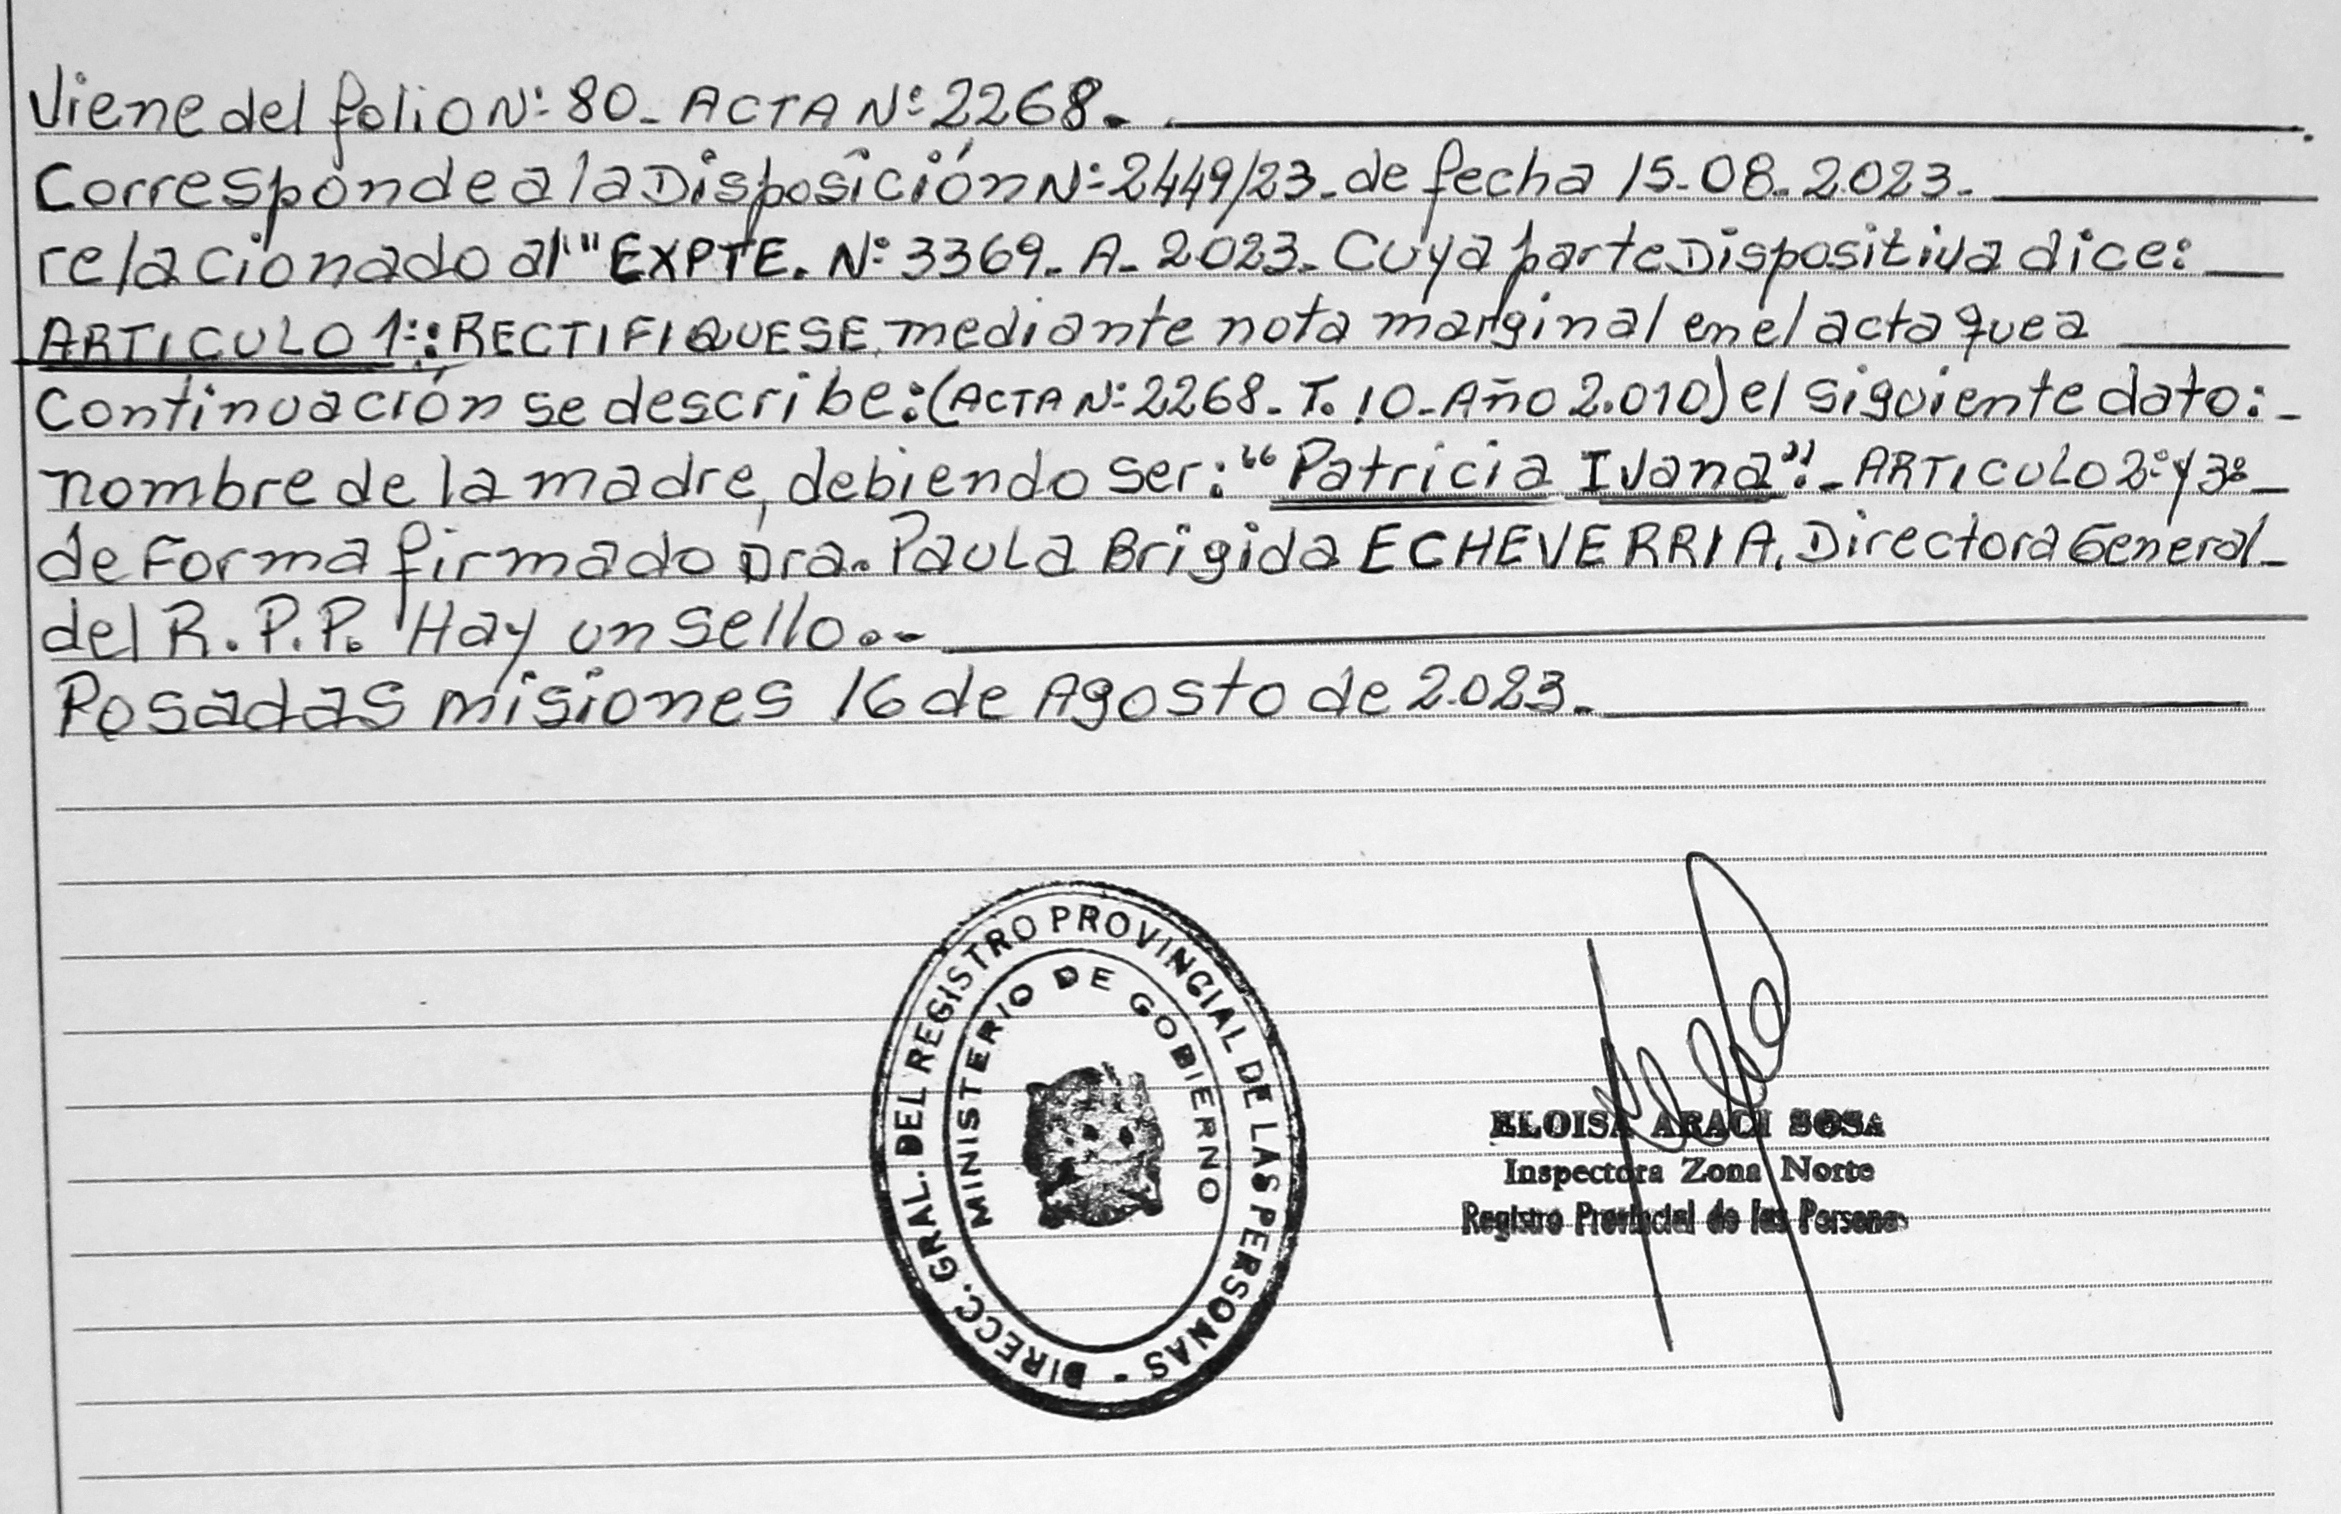 Viene del folio Nº 80_ ACTA Nº 2268_.
Corresponde a la Disposición Nº 2449/23_ de fecha 15_08_2.023_
relacionado al "EXPTE. Nº 3369_ A_ 2023_ Cuya parte Dispositiva dice:
ARTICULO 1º: RECTIFIQUESE, mediante nota marginal en el acta que a
Continuación se describe: (ACTA Nº 2268_ T. 10_ Año 2.010) el siguiente dato:_
nombre de la madre, debiendo ser: "Patricia Ivana"._ ARTICULO 2º y 3º_
de Forma firmado Dra. Paula Brigida ECHEVERRIA. Directora General_
del R.P.P. Hay un sello._
Posadas misiones 16 de Agosto de 2.023_
DIRECC. GRAL. DEL REGISTRO PROVINCIAL DE LAS PERSONAS -
MINISTERIO DE GOBIERNO
ELOISA ARACI SOSA
Inspectora Zona Norte
Registro Provincial de las Personas